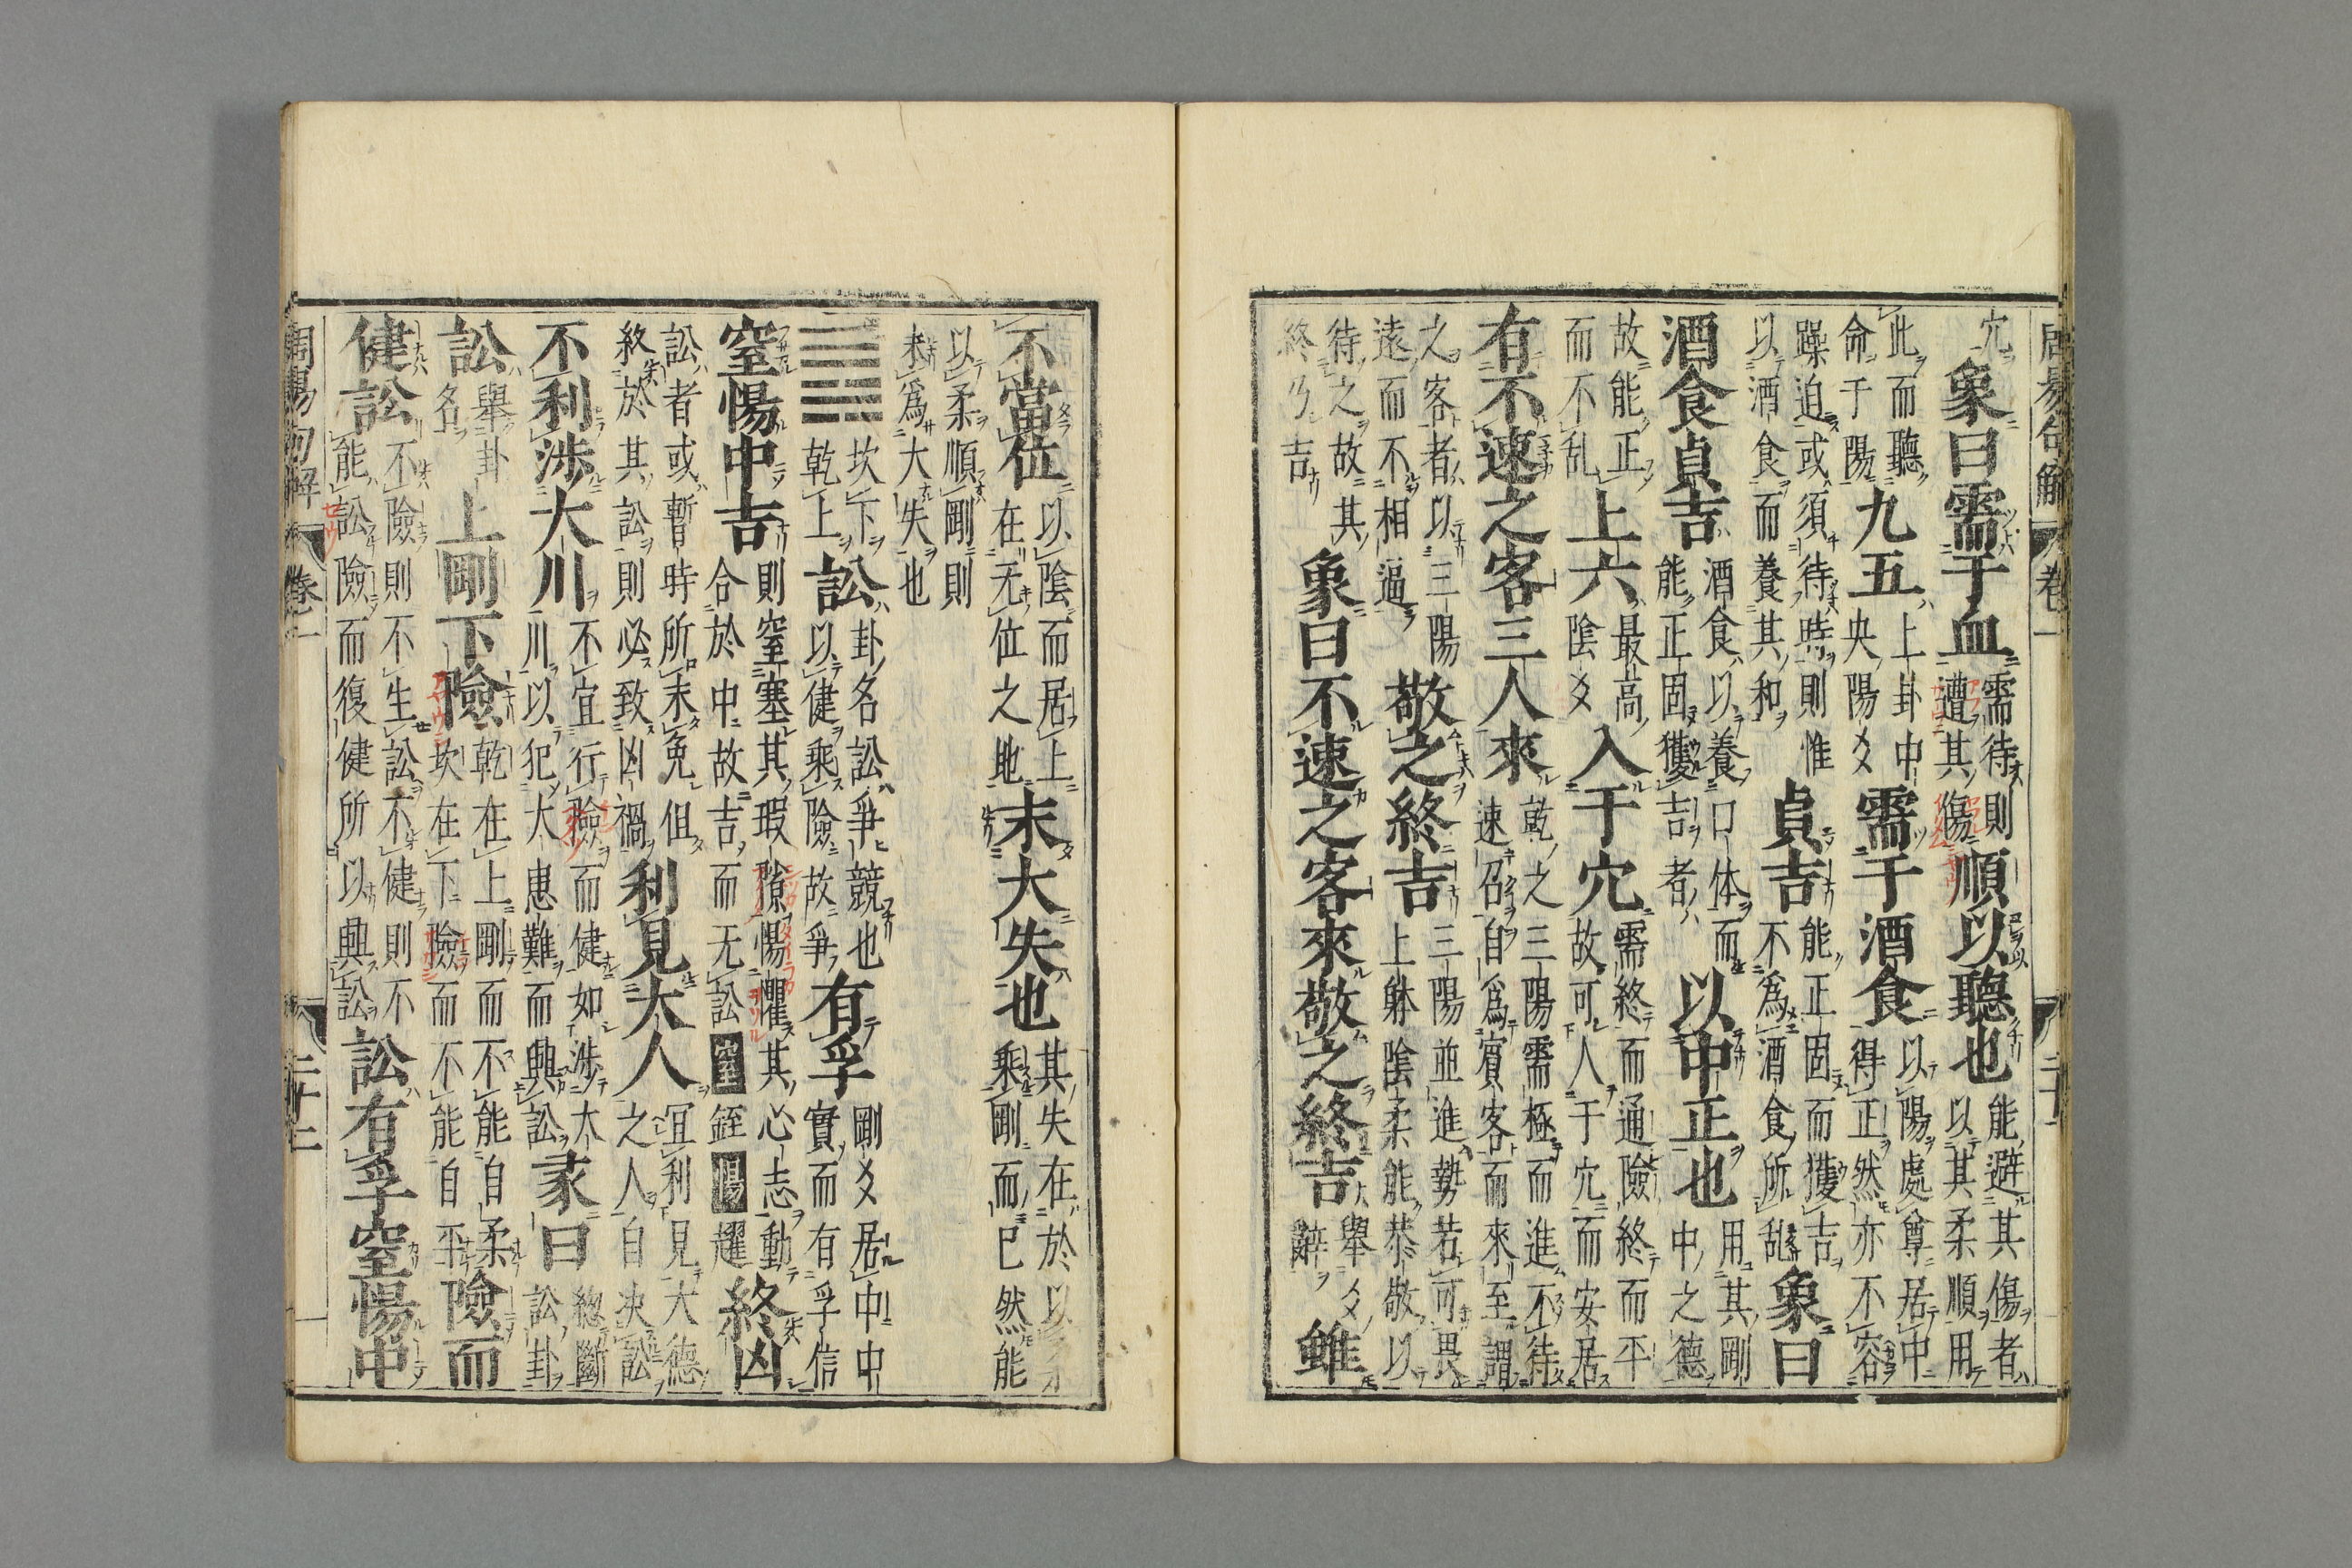 周易句解 卷一 二十一
穴 象曰需于血 需待則遭其傷 順以聽也 能避其傷者以其柔順用
此而聽命于陽 九五 上卦中央陽爻 需于酒食 以陽處尊居中得正然亦不容
躁迫或須待時則惟以酒食而養其和 貞吉 能正固而獲吉不為酒食所乱 象曰
酒食貞吉 酒食以養口体而能正固獲吉者 以中正也 用其剛中之德
故能正而不乱 上六 最高陰爻 入于穴 需終而通險終而平故可人于穴而安居
有不速之客三人來 乾之三陽需極而進不待速召自為賓客而來至謂
之客者以三陽遠而不相逼 敬之終吉 三陽並進勢若可畏上躰陰柔能恭敬以
待之故其終乃吉 象曰不速之客來敬之終吉 舉爻辭 雖
不當位 以陰而居上在无位之地 未大失也 其失在於以柔乘剛而已然能
以柔順剛則未為大失也
坎下乾上 訟 卦名訟爭競也以健乘險故爭 有孚 剛爻居中中實而有孚信
窒惕中吉 則窒塞其瑕隙惕懼其心志動合於中故吉而无訟窒銍惕趯 終凶
訟者或暫時所未免但終於其訟則必致凶禍 利見大人 宜利見大德之人自决訟
不利涉大川 不宜行險而健如涉大川以犯大患難而興訟 彖曰 緫斷訟卦
訟 舉卦名 上剛下險 乾在上剛而不能自柔坎在下險而不能自平 險而
健訟 不險則不生訟不健則不能訟險而復健所以興訟 訟有孚窒惕中
周易句解 卷一 二十二